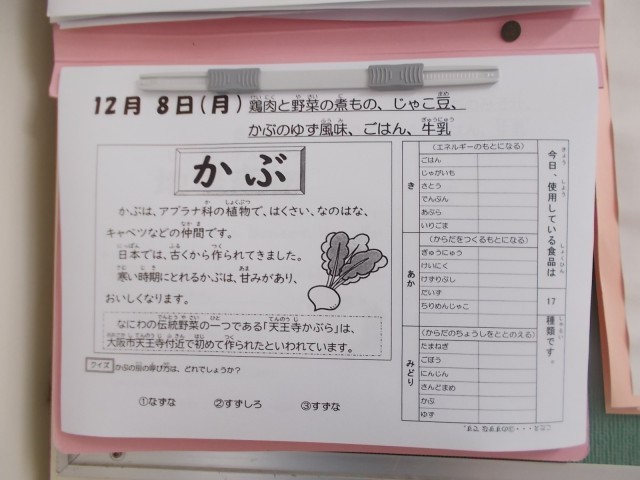 12月 8日(月) 鶏肉と野菜の煮もの、じゃこ豆、
かぶのゆず風味、ごはん、牛乳
かぶ
かぶは、アブラナ科の植物で、はくさい、なのはな、
キャベツなどの仲間です。
日本では、古くから作られてきました。
寒い時期にとれるかぶは、甘みがあり、
おいしくなります。
なにわの伝統野菜の一つである「天王寺かぶら」は、
大阪市天王寺付近で初めて作られたといわれています。
クイズ かぶの昔の呼び方は、どれでしょうか?
①なずな ②すずしろ ③すずな
今日、使用している食品は 17 種類です。
き
(エネルギーのもとになる)
ごはん
じゃがいも
さとう
でんぷん
あぶら
いりごま
あか
(からだをつくるもとになる)
ぎゅうにゅう
けいにく
けずりぶし
だいず
ちりめんじゃこ
みどり
(からだのちょうしをととのえる)
たまねぎ
ごぼう
にんじん
さんどまめ
かぶ
ゆず
こたえ・・・③のすずな です。